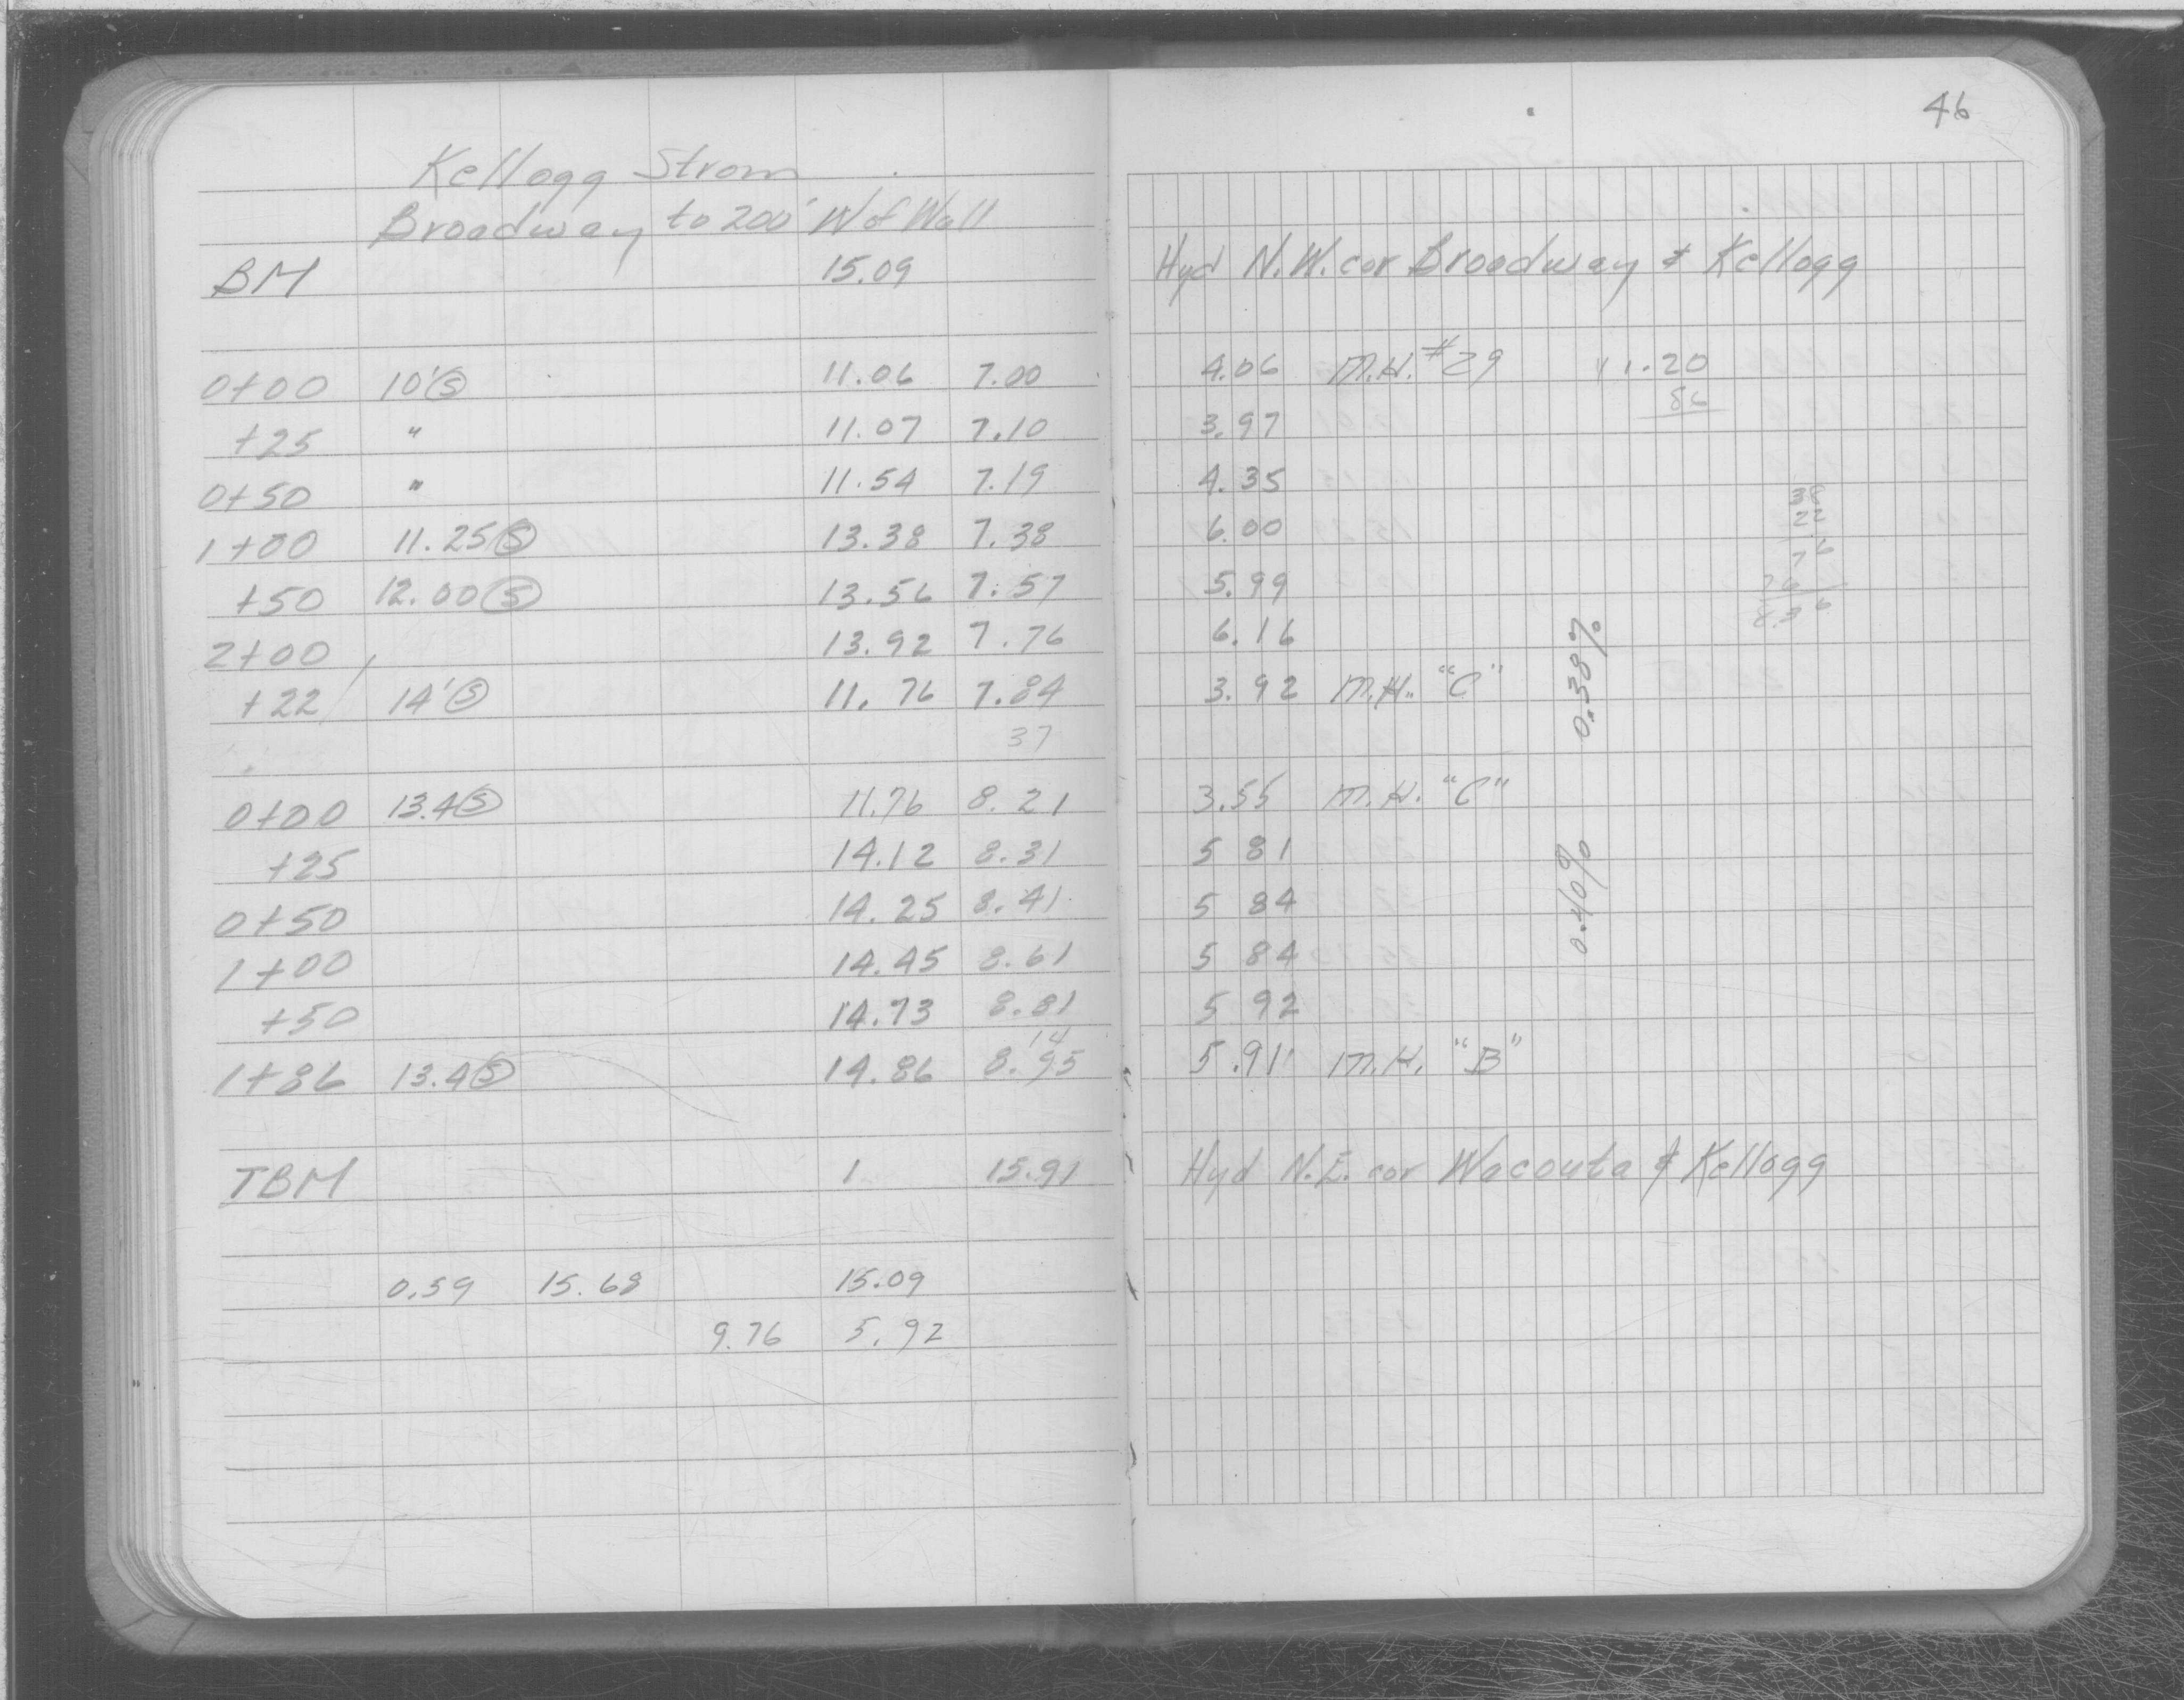 46
Kellogg Strom
Broadway to 200' W of Wall
BM 15.09 Hyd N.W. cor Broadway & Kellogg
0+00 10' Ⓢ 11.06 7.00 4.06 M.H. #29 11.20
86
+25 " 11.07 7.10 3.97
0+50 " 11.54 7.19 4.35 38
22
1+00 11.25 Ⓢ 13.38 7.38 6.00
7 6
+50 12.00 Ⓢ 13.56 7.57 5.99 76
8.3 6
2+00 13.92 7.76 6.16
+22 14' Ⓢ 11.76 7.84 3.92 M.H. "C" 0.38%
37
0+00 13.4 Ⓢ 11.76 8.21 3.55 M.H. "C"
+25 14.12 8.31 5 81
0+50 14.25 8.41 5 84 0.40%
1+00 14.45 8.61 5 84
+50 14.73 8.81 5 92
14
1+86 13.4 Ⓢ 14.86 8.95 5.91 M.H. "B"
TBM 1 15.91 Hyd N.E. cor Wacouta & Kellogg
0.59 15.68 15.09
9.76 5.92